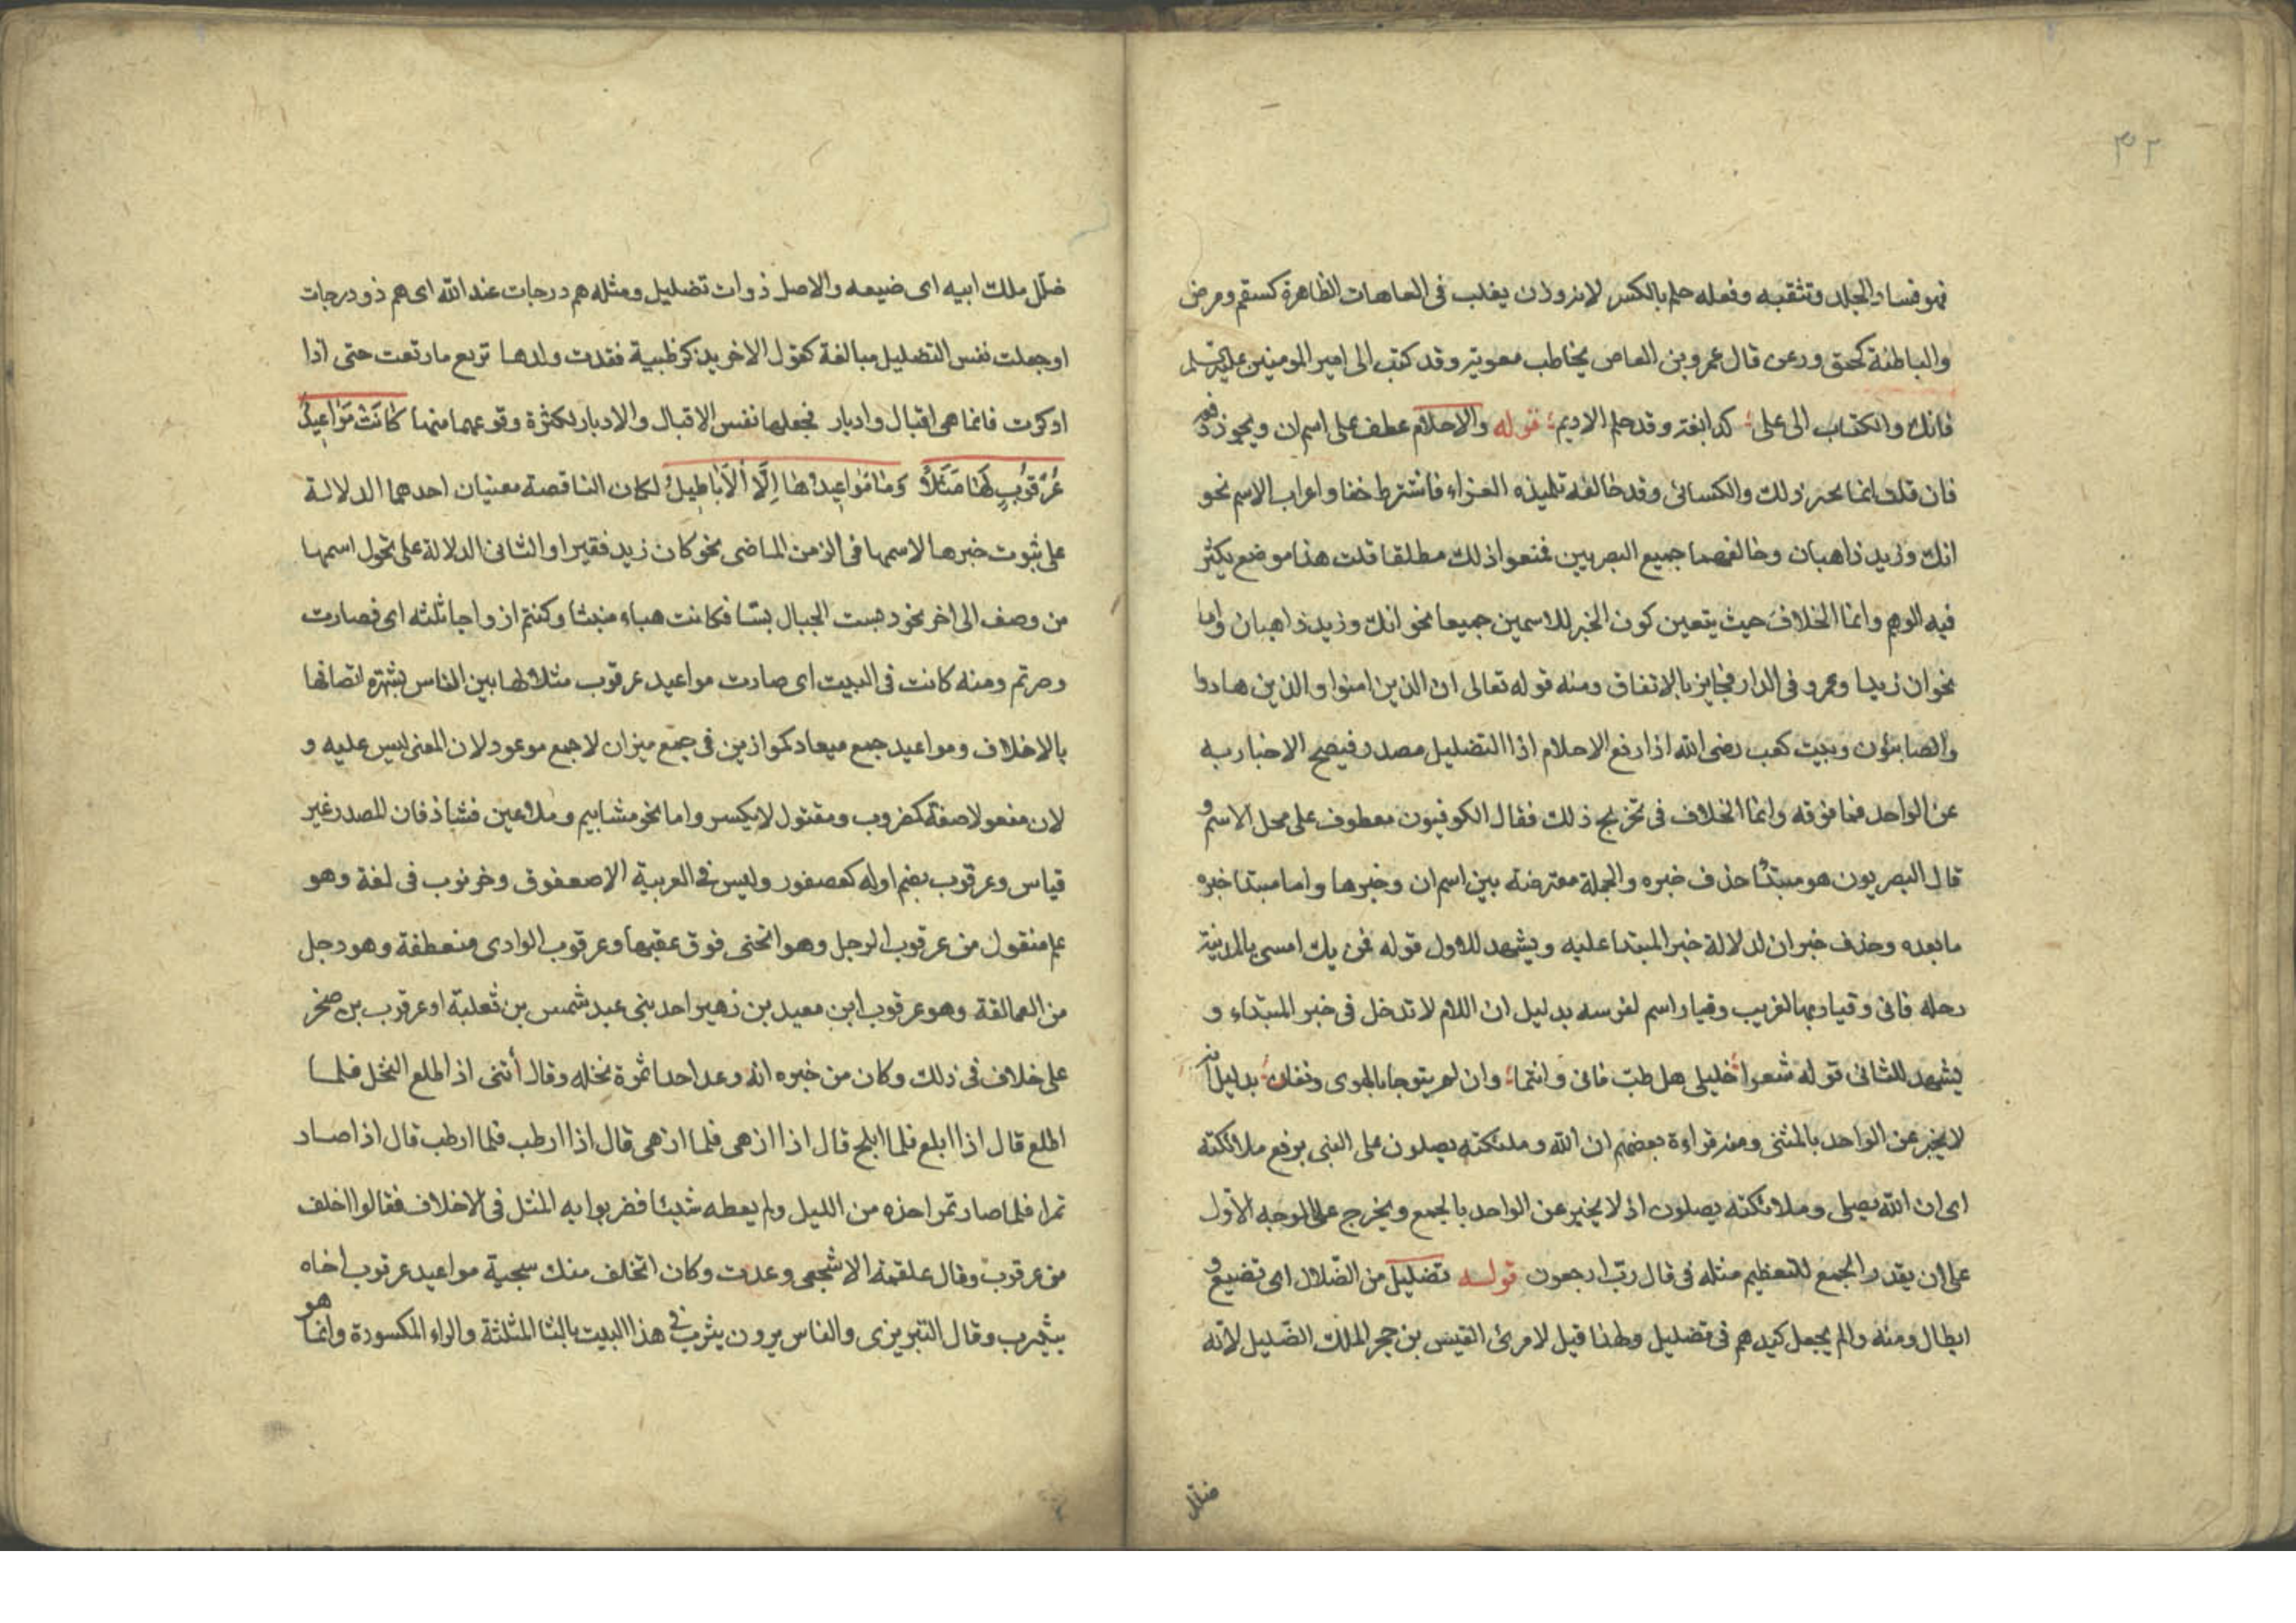 ٣٢
فهو فساد الجلد وتثقبه وفعله حلم بالكسر لانه وزان يغلب فى العاهات الظاهرة كسقم ومرض
والباطنة كحمق ورعن قال عمرو بن العاص يخاطب معوية وقد كتب الى امير المومنين على
فانك والكتاب الى على كدابغة وقد حلم الاديم قوله والاحلام عطف على اسم ان ويجوز
فان قلت انما يجيز ذلك والكسائى وقد خالفه تلميذه الفراء فاشترط خفا واعراب الاسم نحو
انك وزيد ذاهبان وخالفهما جميع البصريين فمنعوا ذلك مطلقا قلت هذا موضع يكثر
فيه الوهم وانما الخلاف حيث يتعين كون الخبر للاسمين جميعا نحو انك وزيد ذاهبان واما
نحو ان زيدا وعمرو فى الدار فجايز بالاتفاق ومنه قوله تعالى ان الذين امنوا والذين هادوا
والصابئون وبيت كعب رضى الله اذا رفع الاحلام اذا التضليل مصدر فيصح الاخبار به
عن الواحد فما فوقه وانما الخلاف فى تخريج ذلك فقال الكوفيون معطوف على محل الاسم و
قال البصريون هو مبتدأ حذف خبره والجملة معترضة بين اسم ان وخبرها واما مبتدا خبره
مابعده وحذف خبر ان لدلالة خبر المبتدا عليه ويشهد للاول قوله فمن يك امسى بالمدينة
رحله فانى وقيار بها لغريب وقيار اسم لفرسه بدليل ان اللام لا تدخل فى خبر المبتداء و
يشهد للثانى قوله شعرا خليلى هل طب فانى وانتما وان لم يتوجا بالهوى دنفان بدليل انه
لا يخبر عن الواحد بالمثنى ومنه قراءة بعضهم ان الله وملئكته يصلون على النبى برفع ملائكته
اى ان الله يصلى وملائكته يصلون اذ لا يخبر عن الواحد بالجمع ويخرج على الوجه الاول
على ان يقدر الجمع للتعظيم مثله فى قال رب ارجعون قوله تضليل من الضلال اى تضييع و
ابطال ومنه والم يجعل كيدهم فى تضليل ولهذا قيل لامرئ القيس بن حجر الملك الضليل لانه
ضلل
ضلل ملك ابيه اى ضيعه والاصل ذوات تضليل ومثله هم درجات عند الله اى هم ذو درجات
او جعلت نفس التضليل مبالغة كقول الاخر يذكر ظبية فقدت ولدها تربع مارتعت حتى اذا
ادكرت فانما هى اقبال وادبار فجعلها نفس الاقبال والادبار لكثرة وقوعهما منها كَانَتْ مَوَاعِيدُ
عُرْقُوبٍ لَهَا مَثَلاً وَمَا مَوَاعِيدُهَا اِلَّا الْاَبَاطِيلُ لكان الناقصة معنيان احدهما الدلالة
على ثبوت خبرها لاسمها فى الزمن الماضى نحو كان زيد فقيرا والثانى الدلالة على تحول اسمها
من وصف الى اخر نحو وبست الجبال بسا فكانت هباء منبثا وكنتم ازواجا ثلثه اى فصارت
وصرتم ومنه كانت فى البيت اى صارت مواعيد عرقوب مثلا لها بين الناس بشهرة اتصافها
بالاخلاف ومواعيد جمع ميعاد كموازين فى جمع ميزان لا جمع موعود لان المعنى ليس عليه و
لان مفعولا صفة كمضروب ومقتول لا يكسر واما نحو مشايم وملاعين فشاذ فان للمصدر غير
قياس وعرقوب بضم اوله كعصفور وليس فى العربية الا صعفوق وخرنوب فى لغة وهو
علم منقول من عرقوب الرجل وهو انحنى فوق عقبها وعرقوب الوادى منعطفة وهو رجل
من العمالقة وهو عرقوب ابن معيد بن زهير احد بنى عبد شمس بن ثعلبة او عرقوب بن صخر
على خلاف فى ذلك وكان من خبره انه وعد احدا ثمرة نخله وقال أئتنى اذ اطلع النخل فلما
اطلع قال اذا ابلح فلما ابلح قال اذا ازهى فلما ازهى قال اذا ارطب فلما ارطب قال اذا صار
تمرا فلما صار تمرا اخذه من الليل ولم يعطه شيئا فضربوا به المثل فى الاخلاف فقالوا اخلف
من عرقوب وقال علقمة الاشجعى وعدت وكان الخلف منك سجية مواعيد عرقوب اخاه
بيثرب وقال التبريزى والناس يروون يثرب فى هذا البيت بالثا المثلثة والراء المكسورة وانما هو